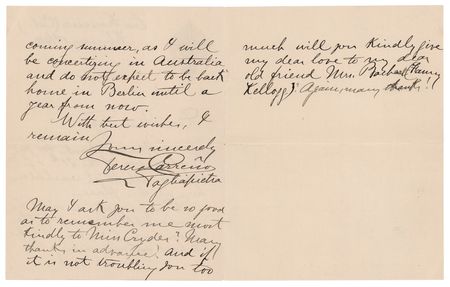 coming summer, as I will
be concertizing in Australia
and do not expect to be back
home in Berlin until a
year from now.
With best wishes, I
remain
Yours sincerely
Teresa Carreño
Tagliapietra
May I ask you to be so good
as to remember me most
kindly to Miss Cryder? Many
thanks in advance! and if
it is not troubling you too
much will you kindly give
my dear love to my dear
old friend Mrs. Rachael (Fanny
Kellogg)? Again many thanks!